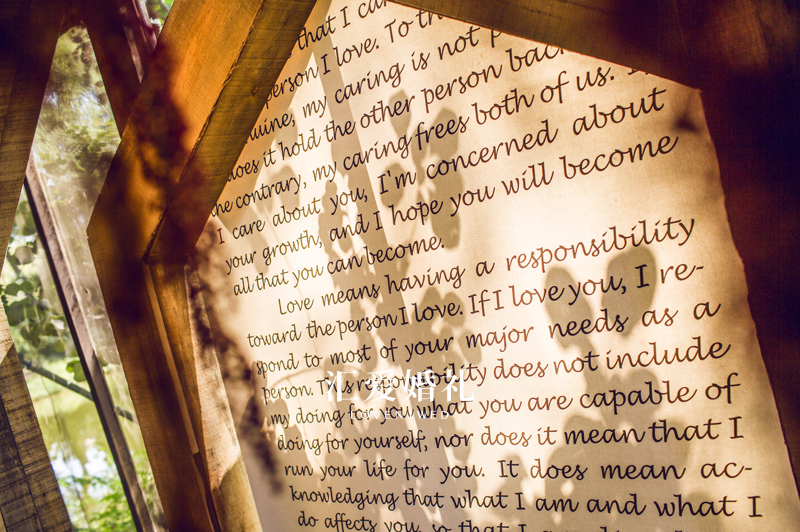 that I ca
person I love. To th
uine, my caring is not p
does it hold the other person back
the contrary, my caring frees both of us.
I care about you, I'm concerned about
your growth, and I hope you will become
all that you can become.
Love means having a responsibility
toward the person I love. If I love you, I re-
spond to most of your major needs as a
person. This responsibility does not include
my doing for you what you are capable of
doing for yourself; nor does it mean that I
run your life for you. It does mean ac-
knowledging that what I am and what I
do affects you, so that I am
汇爱婚礼